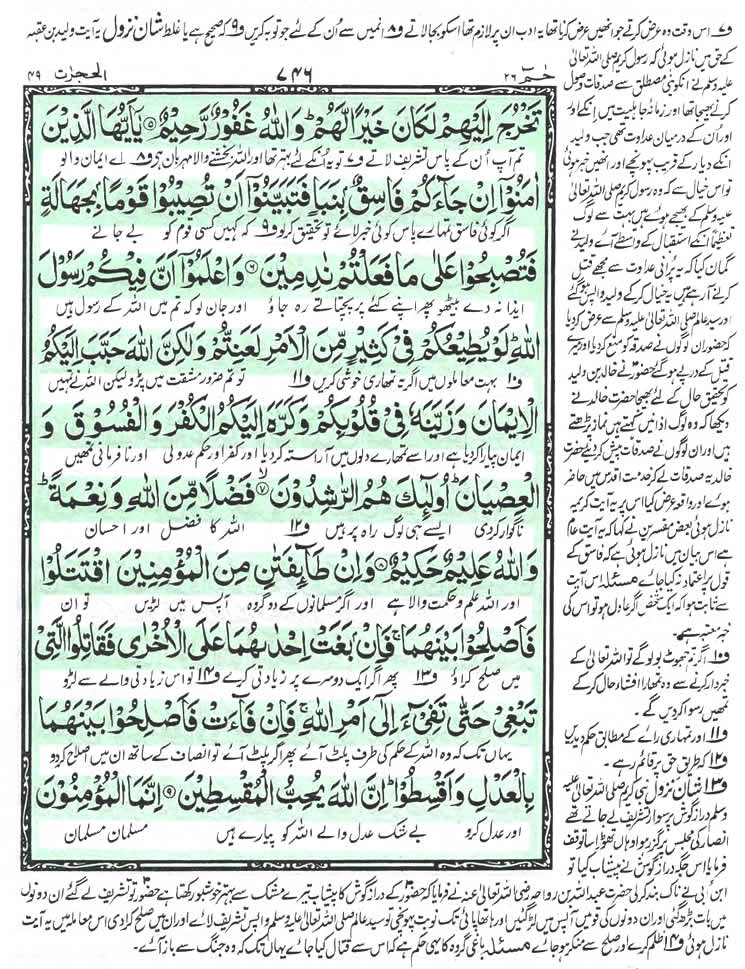 و۷ اس وقت وہ عرض کرتے جو انھیں عرض کرنا تھا یہ ادب ان پر لازم تھا اسکو بجا لاتے و۸ انمیں سے اُن کے لئے جو توبہ کریں و۹ کہ صحیح ہے یا غلط شان نزول یہ آیت ولید بن عقبہ
الحجرٰت ۴۹
۷۴۶
حٰمٓ ۲۶
تَخْرُجَ اِلَیْهِمْ لَكَانَ خَیْرًا لَّهُمْ ؕ وَاللّٰهُ غَفُوْرٌ رَّحِیْمٌ ۵ یٰۤاَیُّهَا الَّذِیْنَ
تم آپ اُن کے پاس تشریف لاتے و۷ تو یہ اُنکے لئے بہتر تھا اور اللہ بخشنے والا مہربان ہے و۸ اے ایمان والو
اٰمَنُوْۤا اِنْ جَآءَكُمْ فَاسِقٌۢ بِنَبَاٍ فَتَبَیَّنُوْۤا اَنْ تُصِیْبُوْا قَوْمًۢا بِجَهَالَةٍ
اگر کوئی فاسق تمہارے پاس کوئی خبر لائے تو تحقیق کرلو و۹ کہ کہیں کسی قوم کو بے جانے
فَتُصْبِحُوْا عَلٰی مَا فَعَلْتُمْ نٰدِمِیْنَ ۶ وَاعْلَمُوْۤا اَنَّ فِیْكُمْ رَسُوْلَ
ایذا نہ دے بیٹھو پھر اپنے کئے پر پچتاتے رہ جاؤ اور جان لو کہ تم میں اللہ کے رسول ہیں
اللّٰهِ ؕ لَوْ یُطِیْعُكُمْ فِیْ كَثِیْرٍ مِّنَ الْاَمْرِ لَعَنِتُّمْ وَلٰكِنَّ اللّٰهَ حَبَّبَ اِلَیْكُمُ
و۱۰ بہت معاملوں میں اگر یہ تمھاری خوشی کریں و۱۱ تو تم ضرور مشقت میں پڑو لیکن اللہ نے تمہیں
الْاِیْمَانَ وَزَیَّنَهٗ فِیْ قُلُوْبِكُمْ وَكَرَّهَ اِلَیْكُمُ الْكُفْرَ وَالْفُسُوْقَ وَ
ایمان پیارا کردیا ہے اور اسے تمھارے دلوں میں آراستہ کردیا اور کفر اور حکم عدولی اور نافرمانی تمھیں
الْعِصْیَانَ ؕ اُولٰٓىِٕكَ هُمُ الرّٰشِدُوْنَ ۷ فَضْلًا مِّنَ اللّٰهِ وَنِعْمَةً ؕ
ناگوار کردی ایسے ہی لوگ راہ پر ہیں و۱۲ اللہ کا فضل اور احسان
وَاللّٰهُ عَلِیْمٌ حَكِیْمٌ ۸ وَاِنْ طَآىِٕفَتٰنِ مِنَ الْمُؤْمِنِیْنَ اقْتَتَلُوْا
اور اللہ علم و حکمت والا ہے اور اگر مسلمانوں کے دو گروہ آپس میں لڑیں تو ان
فَاَصْلِحُوْا بَیْنَهُمَا ۚ فَاِنْۢ بَغَتْ اِحْدٰىهُمَا عَلَی الْاُخْرٰی فَقَاتِلُوا الَّتِیْ
میں صلح کراؤ و۱۳ پھر اگر ایک دوسرے پر زیادتی کرے و۱۴ تو اس زیادتی والے سے لڑو
تَبْغِیْ حَتّٰی تَفِیْٓءَ اِلٰۤی اَمْرِ اللّٰهِ ۚ فَاِنْ فَآءَتْ فَاَصْلِحُوْا بَیْنَهُمَا
یہاں تک کہ وہ اللہ کے حکم کی طرف پلٹ آئے پھر اگر پلٹ آئے تو انصاف کے ساتھ ان میں اصلاح کردو
بِالْعَدْلِ وَاَقْسِطُوْا ؕ اِنَّ اللّٰهَ یُحِبُّ الْمُقْسِطِیْنَ ۹ اِنَّمَا الْمُؤْمِنُوْنَ
اور عدل کرو بے شک عدل والے اللہ کو پیارے ہیں مسلمان مسلمان
کے حق میں نازل ہوئی کہ رسول کریم صلی اللہ تعالیٰ
علیہ وسلم نے انکو بنی مصطلق سے صدقات وصول
کرنے بھیجا تھا اور زمانۂ جاہلیت میں انکے او
اور اُن کے درمیان عداوت تھی جب ولید
انکے دیار کے قریب پہونچے اور انھیں خبر ہوئی
تو اس خیال سے کہ وہ رسول کریم صلی اللہ تعالیٰ
علیہ وسلم کے بھیجے ہوئے ہیں بہت سے لوگ
تعظیماً انکے استقبال کے واسطے آئے ولید نے
گمان کیا کہ یہ پرانی عداوت سے مجھے قتل
کرنے آرہے ہیں یہ خیال کرکے ولید واپس ہوگئے
اور سید عالم صلی اللہ تعالیٰ علیہ وسلم سے عرض کردیا
کہ حضور ان لوگوں نے صدقہ کو منع کردیا اور میرے
قتل کے درپے ہوگئے حضور نے خالد بن ولید
کو تحقیق حال کے لئے بھیجا حضرت خالد نے
دیکھا کہ وہ لوگ اذانیں کہتے ہیں نماز پڑھتے
ہیں اور ان لوگوں نے صدقات پیش کردیئے حضرت
خالد یہ صدقات لے کر خدمت اقدس میں حاضر
ہوئے اور واقعہ عرض کیا اس پر یہ آیت کریمہ
نازل ہوئی بعض مفسرین نے کہا کہ یہ آیت عام
ہے اس بیان میں نازل ہوئی ہے کہ فاسق کے
قول پر اعتماد نہ کیا جائے مسئلہ اس آیت
سے ثابت ہوا کہ ایک شخص اگر عادل ہو تو اس کی
خبر معتبر ہے۔
و۱۰ اگر تم جھوٹ بولو گے تو اللہ تعالیٰ کے
خبردار کرنے سے وہ تمھارا افشاء حال کرکے
تمھیں رسوا کردیں گے۔
و۱۱ اور تمہاری رائے کے مطابق حکم دیدیں
و۱۲ کہ طریق حق پر قائم رہے۔
و۱۳ شان نزول نبی کریم صلی اللہ تعالیٰ علیہ
وسلم دراز گوش پر سوار تشریف لے جاتے تھے
انصار کی مجلس پر گزر ہوا وہاں تھوڑا سا توقف
فرمایا اس جگہ دراز گوش نے پیشاب کیا تو
ابن ابی نے ناک بند کرلی حضرت عبداللہ بن رواحہ رضی اللہ تعالیٰ عنہ نے فرمایا کہ حضور کے دراز گوش کا پیشاب تیرے مشک سے بہتر خوشبو رکھتا ہے حضور تو تشریف لے گئے ان دونوں
میں بات بڑھ گئی اور ان دونوں کی قومیں آپس میں لڑ گئیں اور ہاتھا پائی تک نوبت پہونچی تو سید عالم صلی اللہ تعالیٰ علیہ وسلم واپس تشریف لائے اور ان میں صلح کرادی اس معاملہ میں یہ آیت
نازل ہوئی و۱۴ ظلم کرے اور صلح سے منکر ہو جائے مسئلہ باغی گروہ کا یہی حکم ہے کہ اس سے قتال کیا جائے یہاں تک کہ وہ جنگ سے باز آئے۔